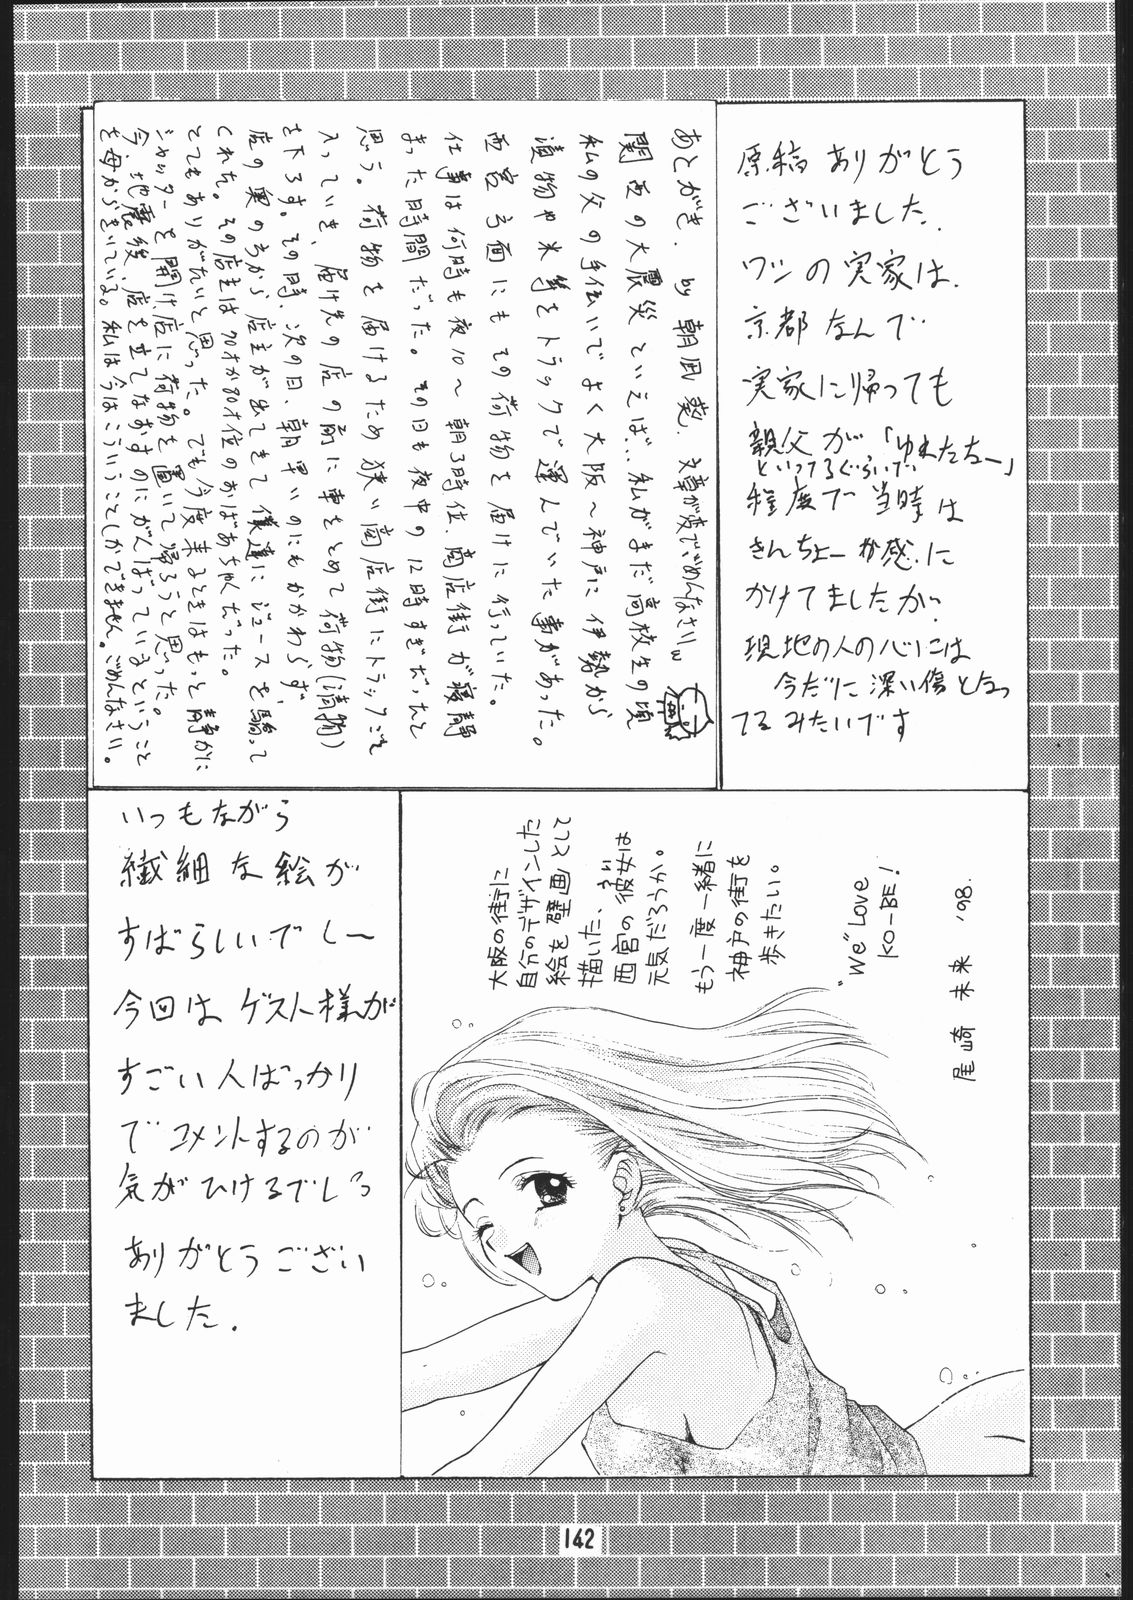 あとがき. by 朝凪 葵. 文章が変でごめんなさいw
関西の大震災といえば…私がまだ高校生の頃
私の父の手伝いでよく大阪〜神戸に伊勢から
漬物や米等をトラックで運んでいた事があった。
西宮方面にもその荷物を届けに行っていた。
仕事は何時も夜10〜朝3時位、商店街が寝静
まった時間だった。その日も夜中の12時すぎだったと
思う。荷物を届けるため狭い商店街にトラックごと
入っていき、届け先の店の前に車をとめて荷物(漬物)
を下ろす。その時、次の日、朝早いのにもかかわらず
店の奥の方から店主が出てきて僕達にジュースを騎って
くれた。その店主は70才か80才位のおばあちゃんだった。
とてもありがたいと思った。でも今度来るときはもっと静かに
シャッターを開け店に荷物を置いて帰ろうと思った。
今、地震後、店を立てなおすのにがんばっているということ
を母からきいている。私は今はこういうことしかできません。ごめんなさい。
原稿ありがとう
ございました.
ワシの実家は.
京都なんで
実家に帰っても
親父が「ゆれたなー」
といってるぐらいで
程度で当時は
きんちょー感に
かけてましたが.
現地の人の心には
今だに深い傷となっ
てるみたいです
いつもながら
繊細な絵が
すばらしいでしー
今回はゲスト様が
すごい人ばっかり
でコメントするのが
気がひけるでしっ
ありがとうござい
ました.
大阪の街に
自分のデザインした
絵を壁画として
描いた、
西宮の彼女は
元気だろうか。
もう一度一緒に
神戸の街を
歩きたい。
"We" Love
KO-BE!
尾崎 未来 '98.
142